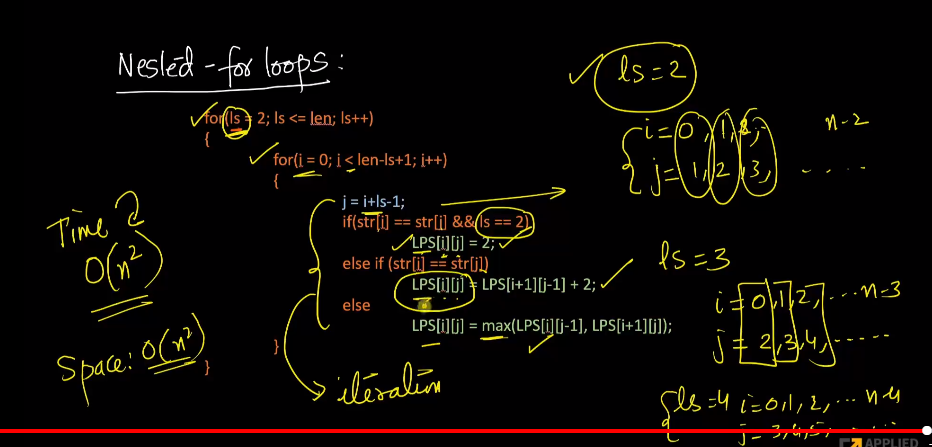 Nested - for loops :
ls = 2
for(ls = 2; ls <= len; ls++)
{
i = 0, 1, 2, n-2
j = 1, 2, 3, ....
for(i = 0; i < len-ls+1; i++)
{
j = i+ls-1;
if(str[i] == str[j] && ls == 2)
LPS[i][j] = 2;
else if (str[i] == str[j])
LPS[i][j] = LPS[i+1][j-1] + 2;
else
LPS[i][j] = max(LPS[i][j-1], LPS[i+1][j]);
}
}
Time
O(n²)
Space: O(n²)
iteration
ls = 3
i = 0, 1, 2, ... n-3
j = 2, 3, 4, .....
ls = 4 i = 0, 1, 2, ... n-4
j = 3, 4, 5,
APPLIED